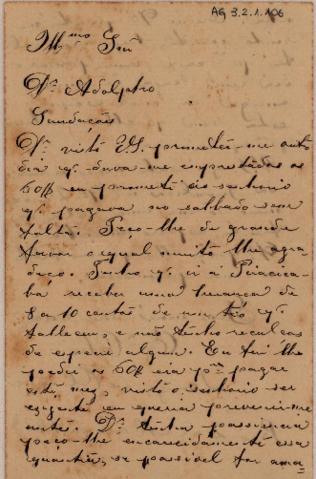 AG 3.2.1.106
Illmo Snr
Dr. Adolpho
Saudação
Dr. visto VS. prometer-me outro
dia q. dava-me emprestados os
60$ eu prometi ao senhorio
q. pagava no sabbado sem
falta. Peço-lhe de grande
favor o qual muito lhe agra-
deço. Tenho q. ir a Piracica-
ba receber uma herança de
8 a 10 contos de um tio q.
falleceu, e não tenho recursos
de especie alguma. Eu fui lhe
pedir os 60$ era pra pagar
este mez, visto o senhorio ser
exigente eu queria prevenir-me
antes. Dr. tenha paciencia
peço-lhe encarecidamente essa
quantia, se possivel for ama-